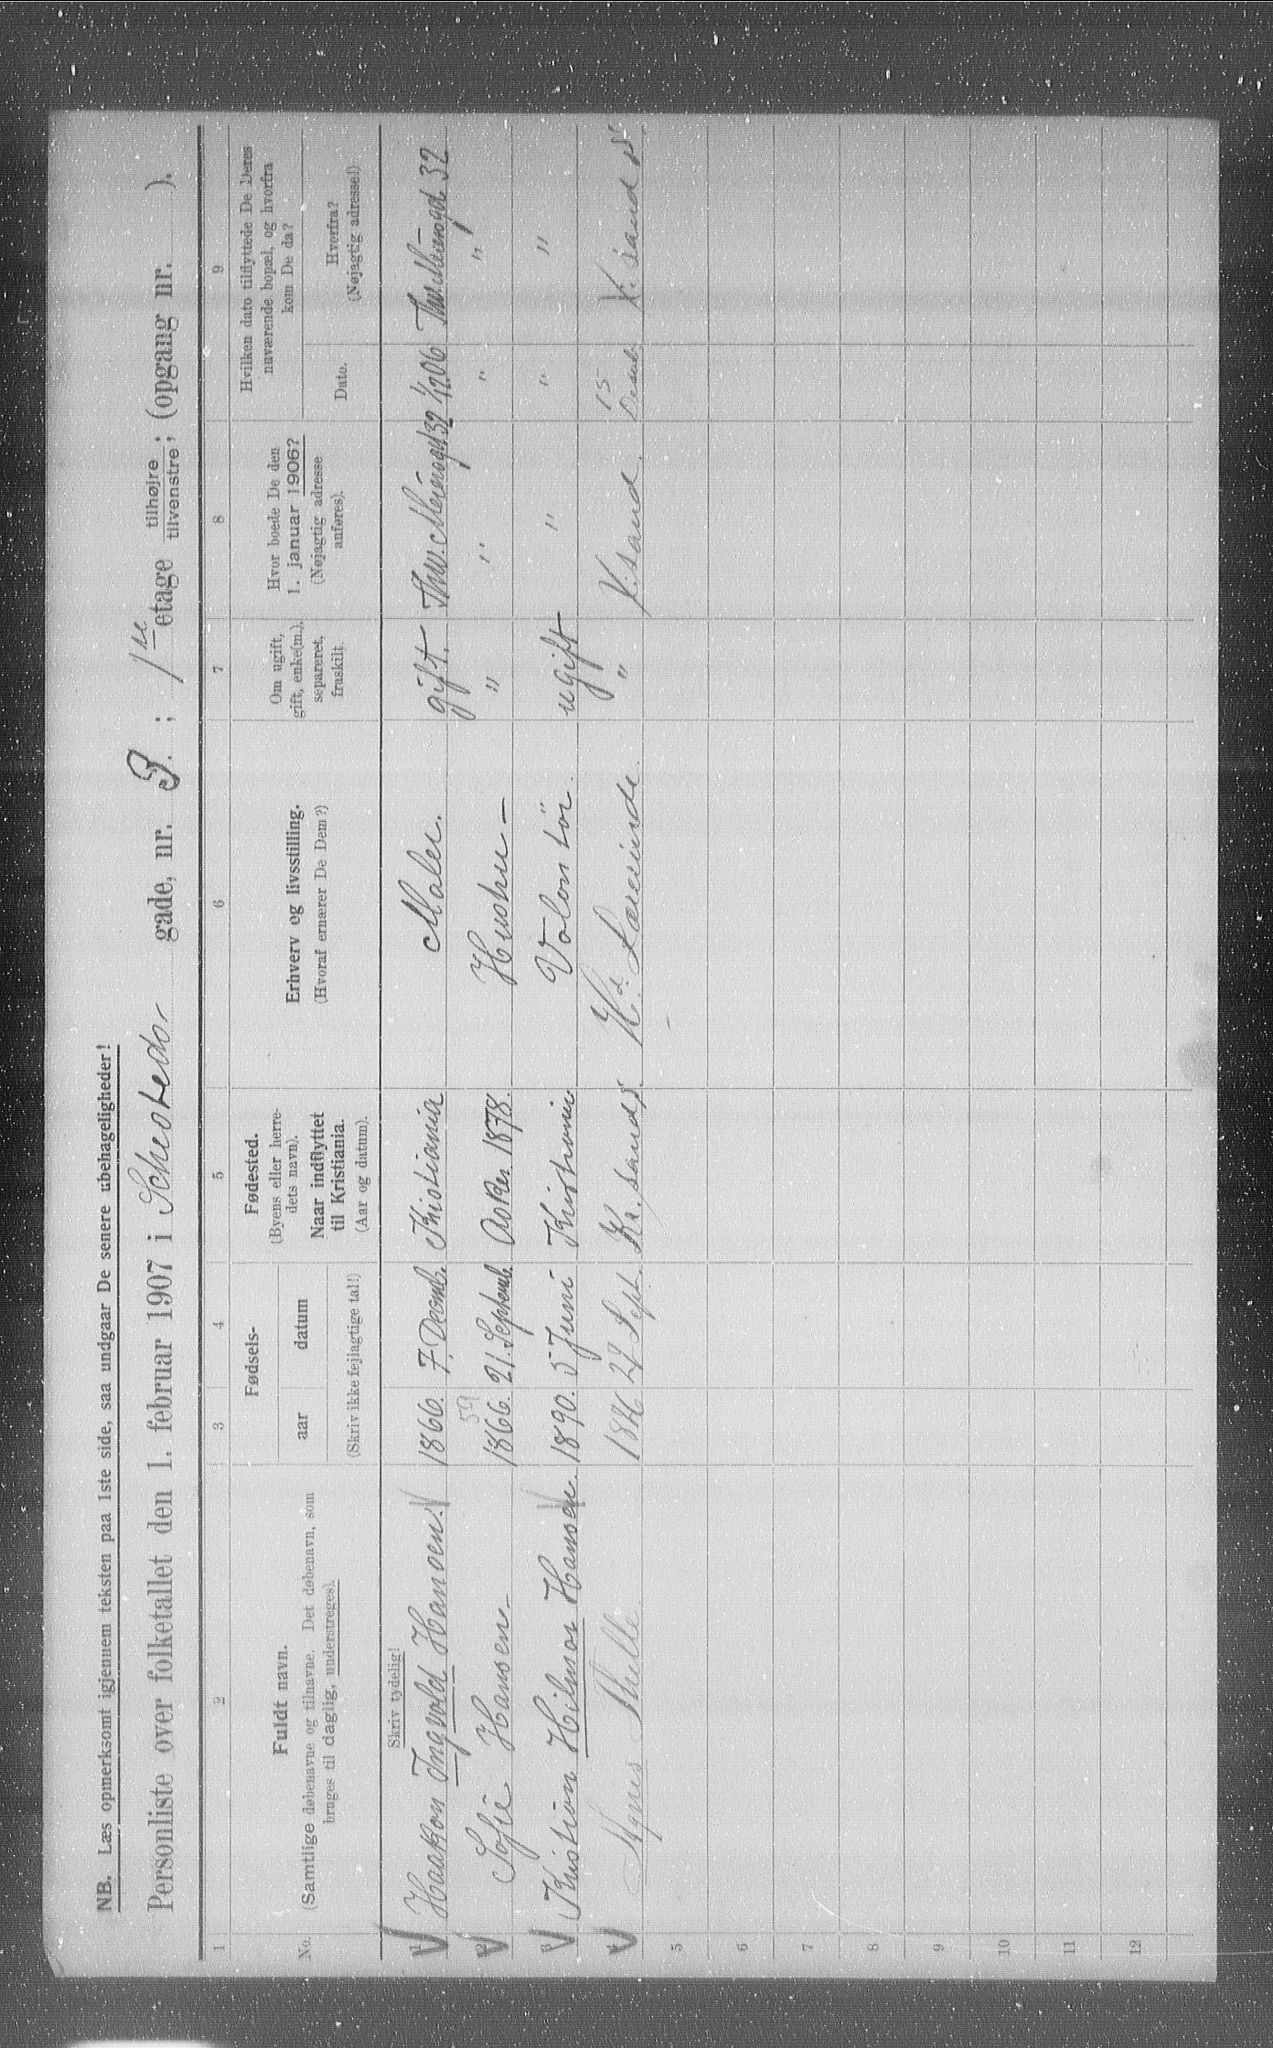 NB. Læs opmerksomt igjennem teksten paa 1ste side, saa undgaar De senere ubehageligheder!
Personliste over folketallet den 1. februar 1907 i Schsteds gade, nr. 3. ; 1ste etage tilhøjre tilvenstre; (opgang nr. ).
1 2 3 4 5 6 7 8 9
No.
Fuldt navn.
(Samtlige døbenavne og tilnavne. Det døbenavn, som
bruges til daglig, understreges).
Skriv tydelig!
Fødsels-
aar datum
(Skriv ikke fejlagtige tal!)
Fødested.
(Byens eller herre-
dets navn).
Naar indflyttet
til Kristiania.
(Aar og datum).
Erhverv og livsstilling.
(Hvoraf ernærer De Dem?)
Om ugift,
gift, enke(m.),
separeret,
fraskilt.
Hvor boede De den
1. januar 1906?
(Nøjagtig adresse
anføres).
Hvilken dato tilflyttede De Deres
nuværende bopæl, og hvorfra
kom De da?
Dato.
Hvorfra?
(Nøjagtig adresse!)
1 Haakon Ingvold Hansen. 1866. 7. Decemb. Kristiania Maler. gift. Thv. Meiersgd 32 1/1206 Thv. Meiersgd. 32
2 Sofie Hansen 59 1866. 21. Septemb. Asker 1878. Hustru " " " "
3 Kristian Hilmar Hansen. 1890. 5 Juni Kristiania Volontör. ugift " " "
4 Agnes 27 Sept. Kr. sand S. " K. sand. 15 K. sand S.
5
6
7
8
9
10
11
12